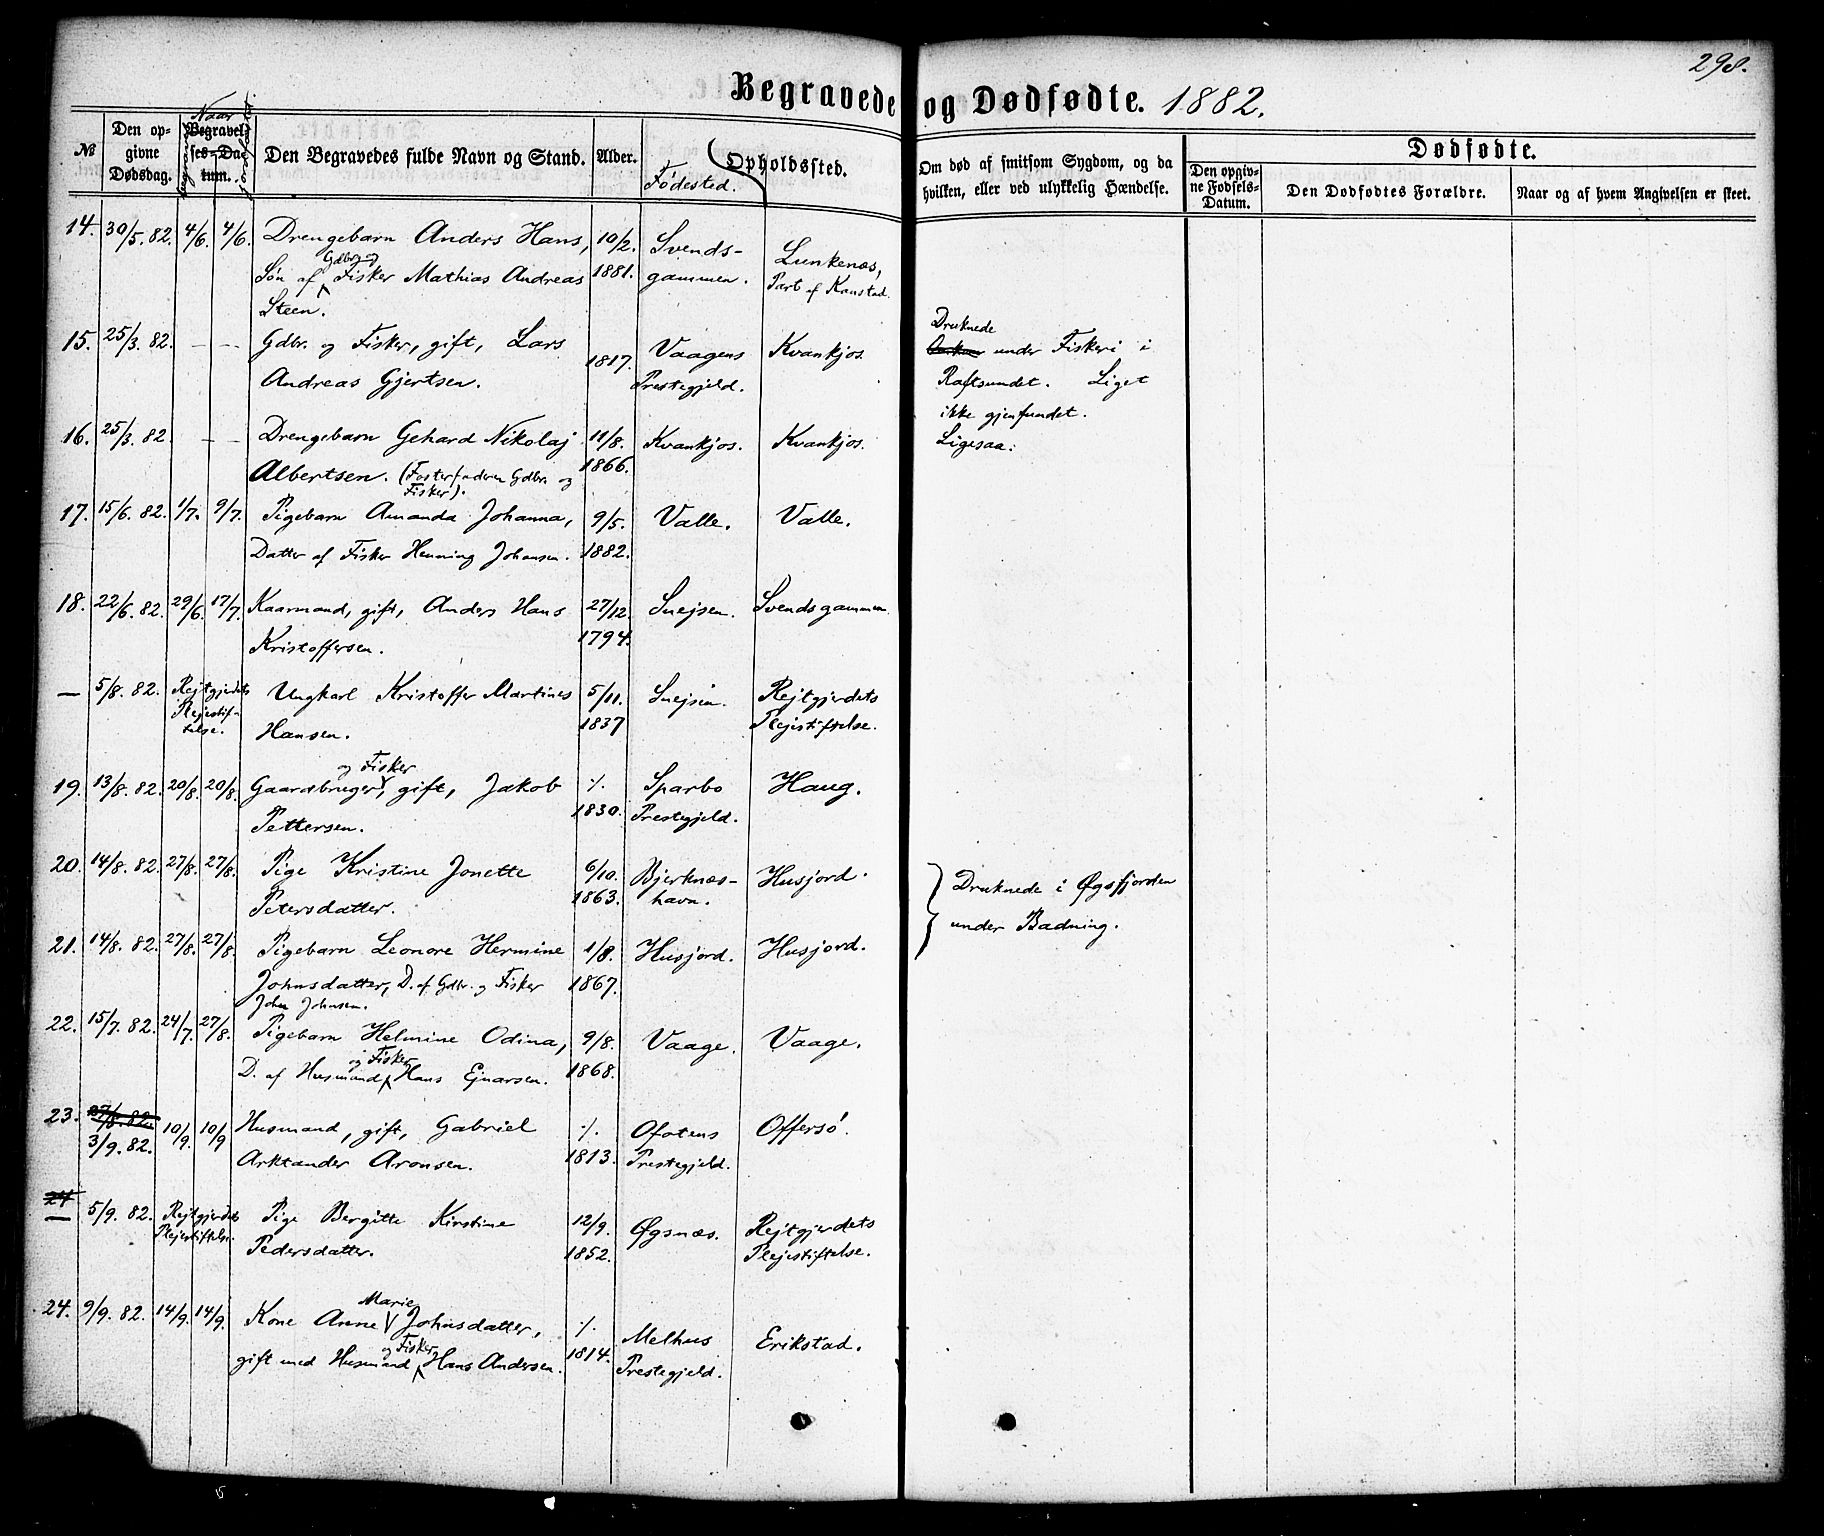 298.
Begravede og Dødfødte. 1882.
№
Den op-
givne
Dødsdag.
Naar
Begravel-
ses-Da-
tum.
Den Begravedes fulde Navn og Stand.
Alder.
Fødested.
Opholdssted.
Om død af smitsom Sygdom, og da
hvilken, eller ved ulykkelig Hændelse.
Dødfødte.
Den opgiv-
ne Fødsels-
Datum.
Den Dødfødtes Forældre.
Naar og af hvem Angivelsen er skeet.
14. 30/5. 82. 4/6. 4/6. Drengebarn Anders Hans, 10/2. Svends- Lunkenæs,
Gdbr. og
Søn af Fisker Mathias Andreas 1881. gammen. Part af Kanstad.
Steen.
15. 25/3. 82. — — Gdbr. og Fisker, gift, Lars 1817. Vaagens Kvankjos. Druknede
under Fiskeri i
Andreas Gjertsen. Prestegjeld. Raftsundet. Liget
ikke gjenfundet.
16. 25/3. 82. — — Drengebarn Gehard Nikolaj 11/8. Kvankjos. Kvankjos. Ligesaa.
Albertsen. (Fosterfaderen Gdbr. og 1866.
Fisker).
17. 15/6. 82. 1/7. 9/7. Pigebarn Amanda Johanna, 9/5. Valle. Valle.
Datter af Fisker Henning Johansen. 1882.
18. 22/6. 82. 29/6. 17/7. Kaarmand, gift, Anders Hans 27/12. Snejsen. Svendsgammen.
Kristoffersen. 1794.
— 5/8. 82. Rejtgjerdets Ungkarl Kristoffer Martines 5/11. Snejsen. Rejtgjerdets
Plejestif-
telse. Hansen. 1837 Plejestiftelse.
og Fisker
19. 13/8. 82. 20/8. 20/8. Gaardbruger, gift, Jakob ·/. Sparbo Haug.
Pettersen. 1830. Prestegjeld.
20. 14/8. 82. 27/8. 27/8. Pige Kristine Jonette 6/10. Bjerknæs- Husjord. Druknede i Øgsfjorden
Petersdatter. 1863. havn. under Badning.
21. 14/8. 82. 27/8. 27/8. Pigebarn Leonore Hermine 1/8. Husjord. Husjord.
Johnsdatter, D. af Gdbr. og Fisker 1867.
John Johnsen.
22. 15/7. 82. 24/7. 27/8. Pigebarn Helmine Odina, 9/8. Vaage. Vaage.
og Fisker
D. af Husmand Hans Ejnarsen. 1868.
23. 27/8. 82. 10/9. 10/9 Husmand, gift, Gabriel ·/. Ofotens Offersø.
3/9. 82. Arktander Aronsen. 1813. Prestegjeld.
24
— 5/9. 82. Rejtgjerdets Pige Bergitte Kirstine 12/9. Øgsnæs. Rejtgjerdets
Plejestiftelse. Pedersdatter. 1852. Plejestiftelse.
Marie
24. 9/9. 82. 14/9. 14/9. Kone Anne Johnsdatter, ·/. Melhus Erikstad.
og Fisker
gift med Husmand Hans Andersen. 1814. Prestegjeld.